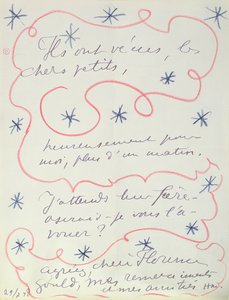 Ils ont vécus, les
chers petits,
heureusement pour
moi, plus d'un matin.
J'attends leur frère
oserais-je vous l'a-
vouer ?
agréez, chère Florence
Gould, mes remerciements
et mes amitiés